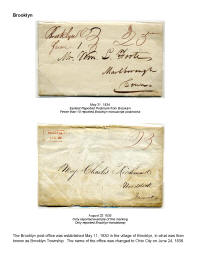 Brooklyn
Brooklyn O
June 1
25
Mr. Wm. L. Foote
Marlborough
Conn
May 31, 1834
Earliest Reported Postmark from Brooklyn
Fewer than 10 reported Brooklyn manuscript postmarks
25
Charles
August 22, 1835
Only reported example of this marking
Only Reported Brooklyn handstamp
The Brooklyn post office was established May 11, 1830 in the village of Brooklyn, in what was then
known as Brooklyn Township. The name of the office was changed to Ohio City on June 24, 1836.